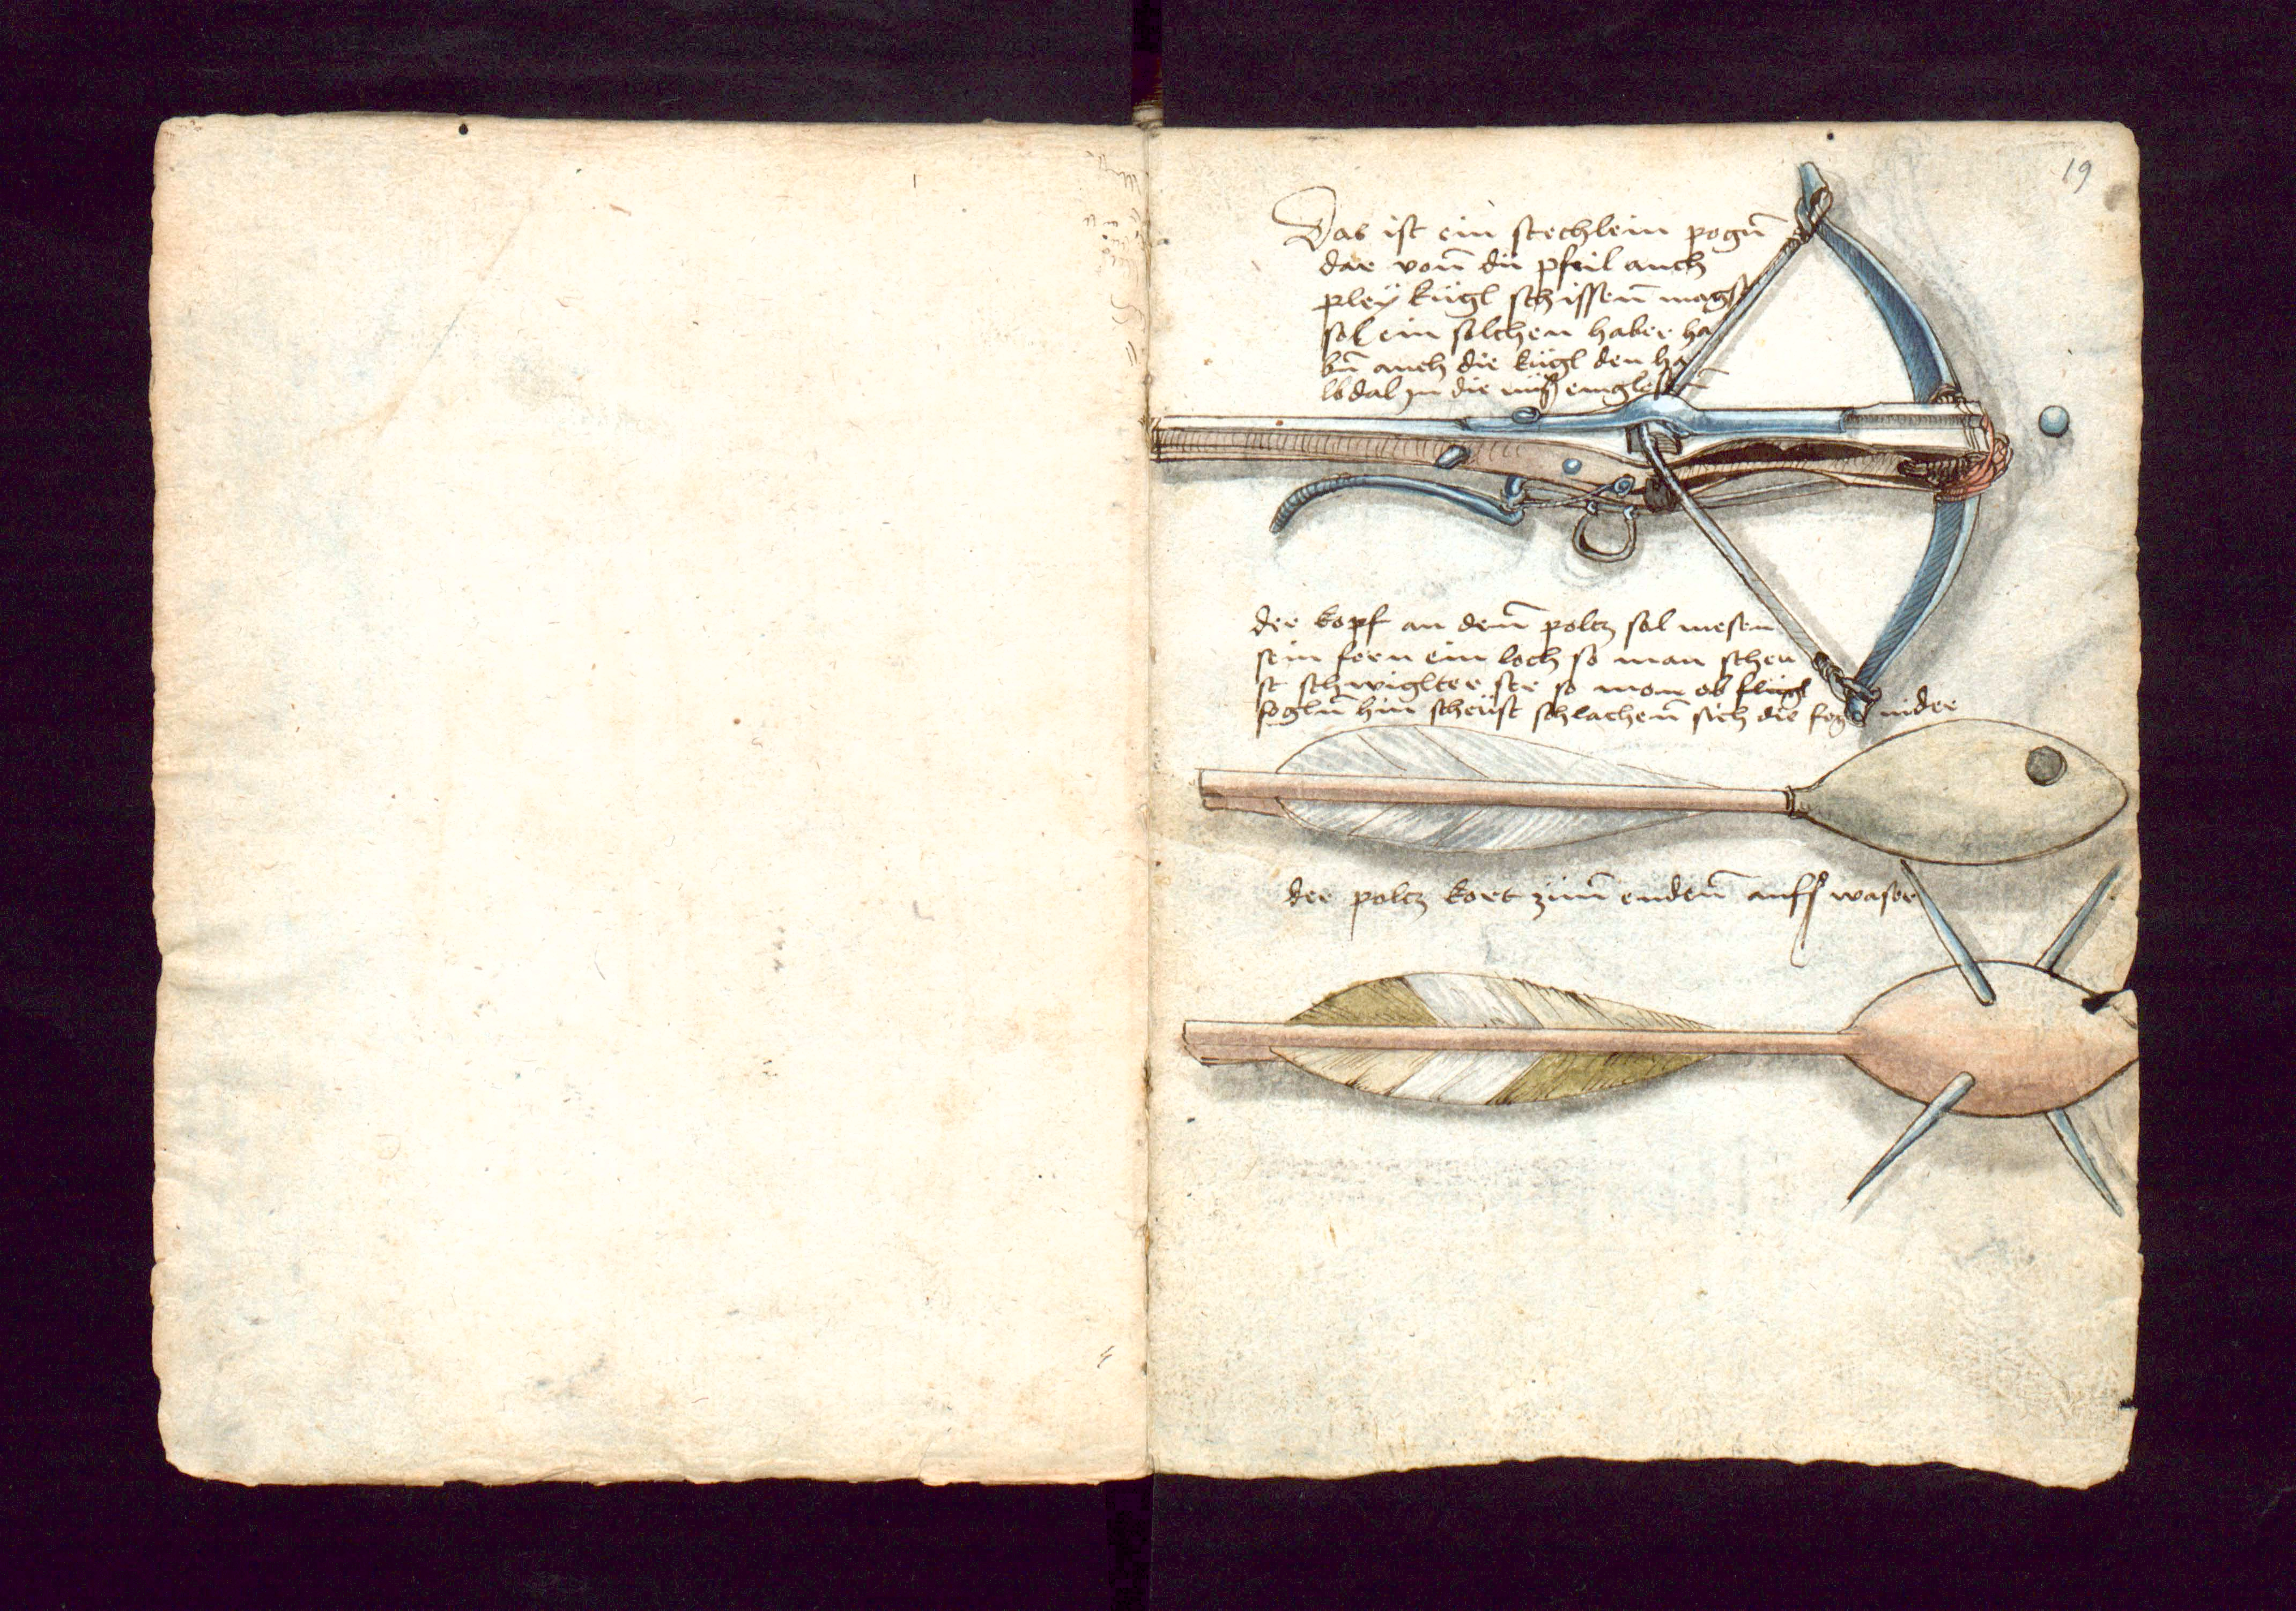 19
Das ist ein stechlein pogn̄
dar von̄ du pfeil auch
pleÿ kügl schissen̄ magst
sol ein solchen haber ha
bn̄ auch die kügl den ha
in die nüss
der kopf an dem̄ poltz sol mesen
sein forn ein loch so man scheu
st so man ob flügl
fogln̄ hin scheüst schlachen̄ sich die fogl nider
der poltz kort zum̄ enden̄ auffs waser